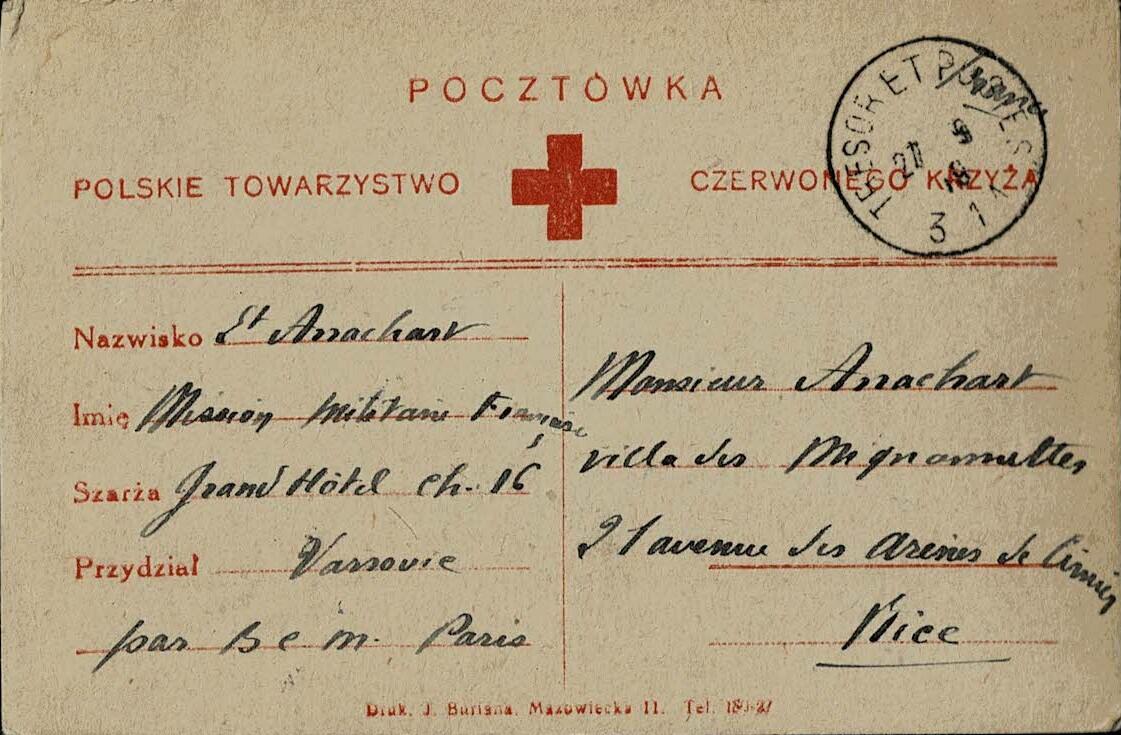 POCZTÓWKA
POLSKIE TOWARZYSTWO CZERWONEGO KRZYŻA
TRESOR ET POSTES
21 9
3 1
Nazwisko Lt Anachart
Imię Mission Militaire Française
Szarża Grand Hôtel ch. 16
Przydział Varsovie
par B c m. Paris
Monsieur Anachart
villa des Mignonnettes
21 avenue des Arènes de Cimiez
Nice
Druk. J. Buriana, Mazowiecka 11. Tel.